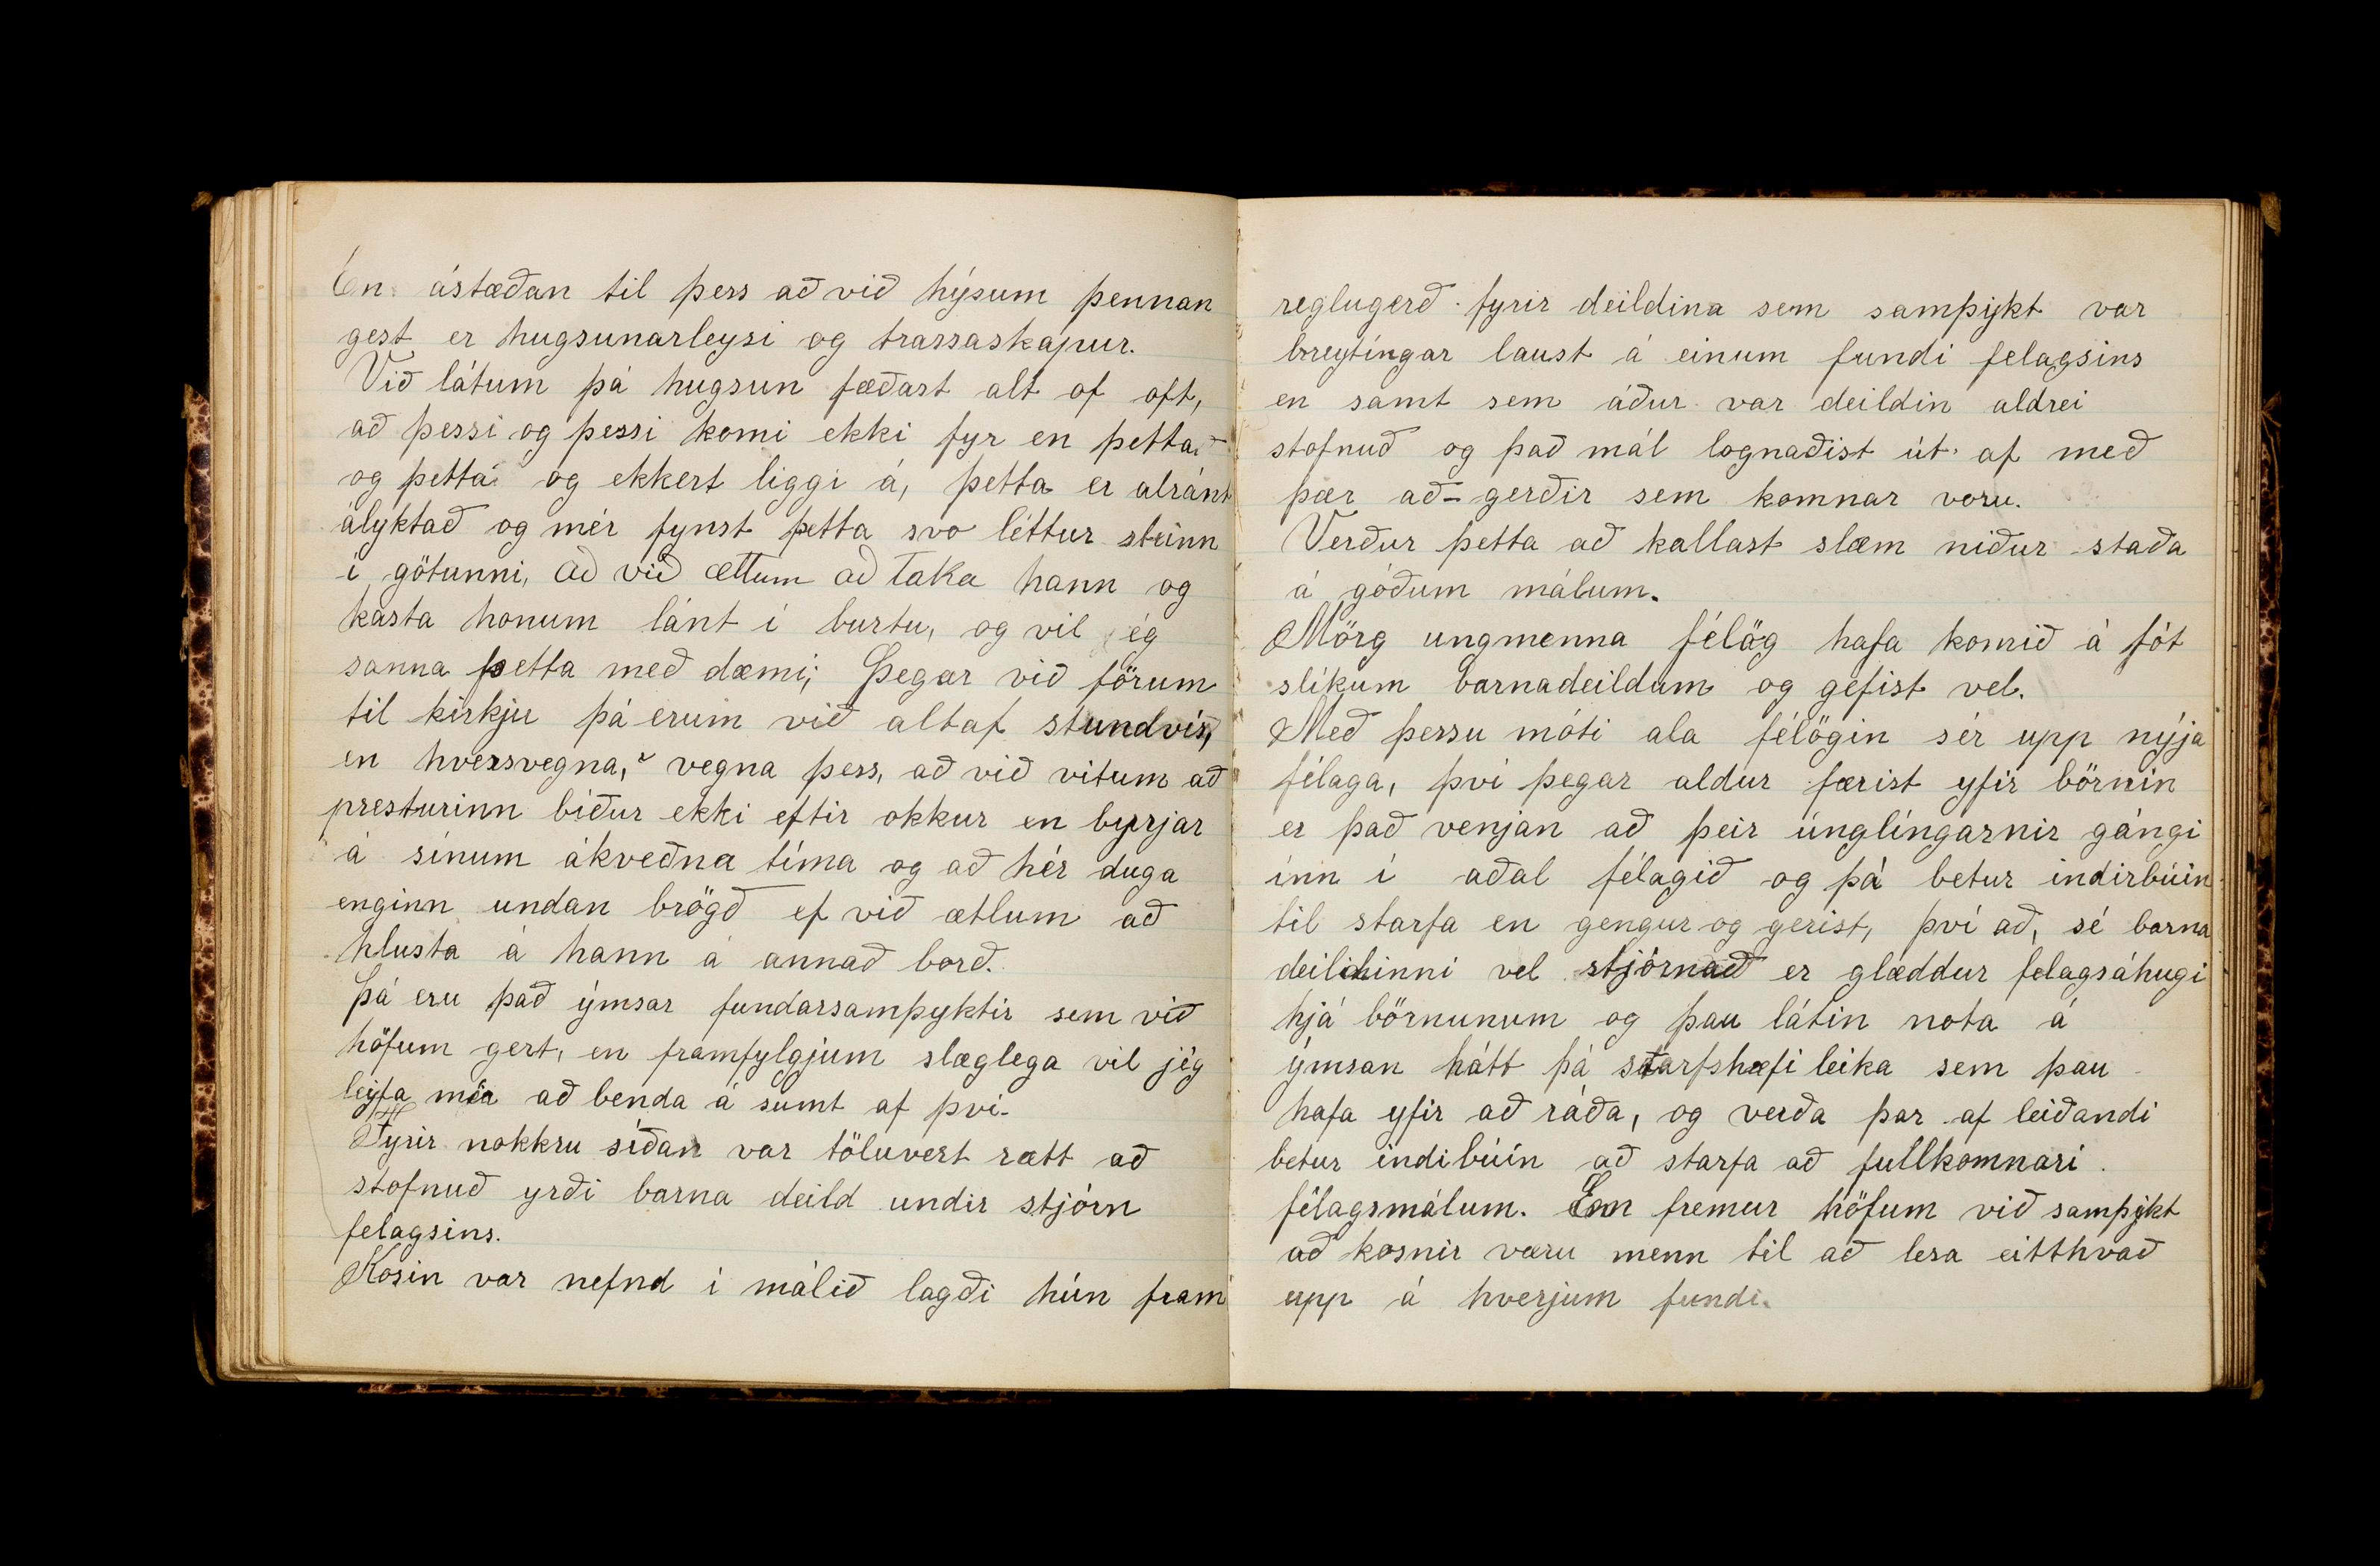 En ástæðan til þess að við hýsum þennan
gest er hugsunarleysi og trassaskapur.
Við látum þá hugsun fæðast alt of oft,
að þessi og þessi komi ekki fyr en þetta
og þetta og ekkert liggi á, þetta er alránt
ályktað og mér fynst þetta svo léttur steinn
í götunni, að við ættum að taka hann og
kasta honum lánt í burtu, og vil ég
sanna þetta með dæmi; Þegar við förum
til kirkju þá erum við altaf stundvís,
en hversvegna, vegna þess, að við vitum að
presturinn bíður ekki eftir okkur en byrjar
á sínum ákveðna tíma og að hér duga
enginn undan brögð ef við ætlum að
hlusta á hann á annað borð.
Þá eru það ýmsar fundarsamþyktir sem við
höfum gert, en framfylgjum slæglega vil jég
leyfa mér að benda á sumt af því.
Fyrir nokkru síðan var töluvert rætt að
stofnuð yrði barna deild undir stjórn
felagsins.
Kosin var nefnd í málið lagði hún fram
reglugerð fyrir deildina sem samþykt var
breytíngar laust á einum fundi felagsins
en samt sem áður var deildin aldrei
stofnuð og það mál lognaðist út af með
þær að-gerðir sem komnar voru.
Verður þetta að kallast slæm niður staða
á góðum málum.
Mörg ungmenna félög hafa komið á fót
slíkum barnadeildum og gefist vel.
Með þessu móti ala félögin sér upp nýja
félaga, því þegar aldur færist yfir börnin
er það venjan að þeir únglíngarnir gángi
inn í aðal félagið og þá betur indirbúin
til starfa en gengur og gerist, því að, sé barna
deildinni vel stjórnað er glæddur felagsáhugi
hjá börnunum og þau látin nota á
ýmsan hátt þá starfshæfileika sem þau
hafa yfir að ráða, og verða þar af leiðandi
betur indibúin að starfa að fullkomnari
félagsmálum. Enn fremur höfum við samþykt
að kosnir væru menn til að lesa eitthvað
upp á hverjum fundi.